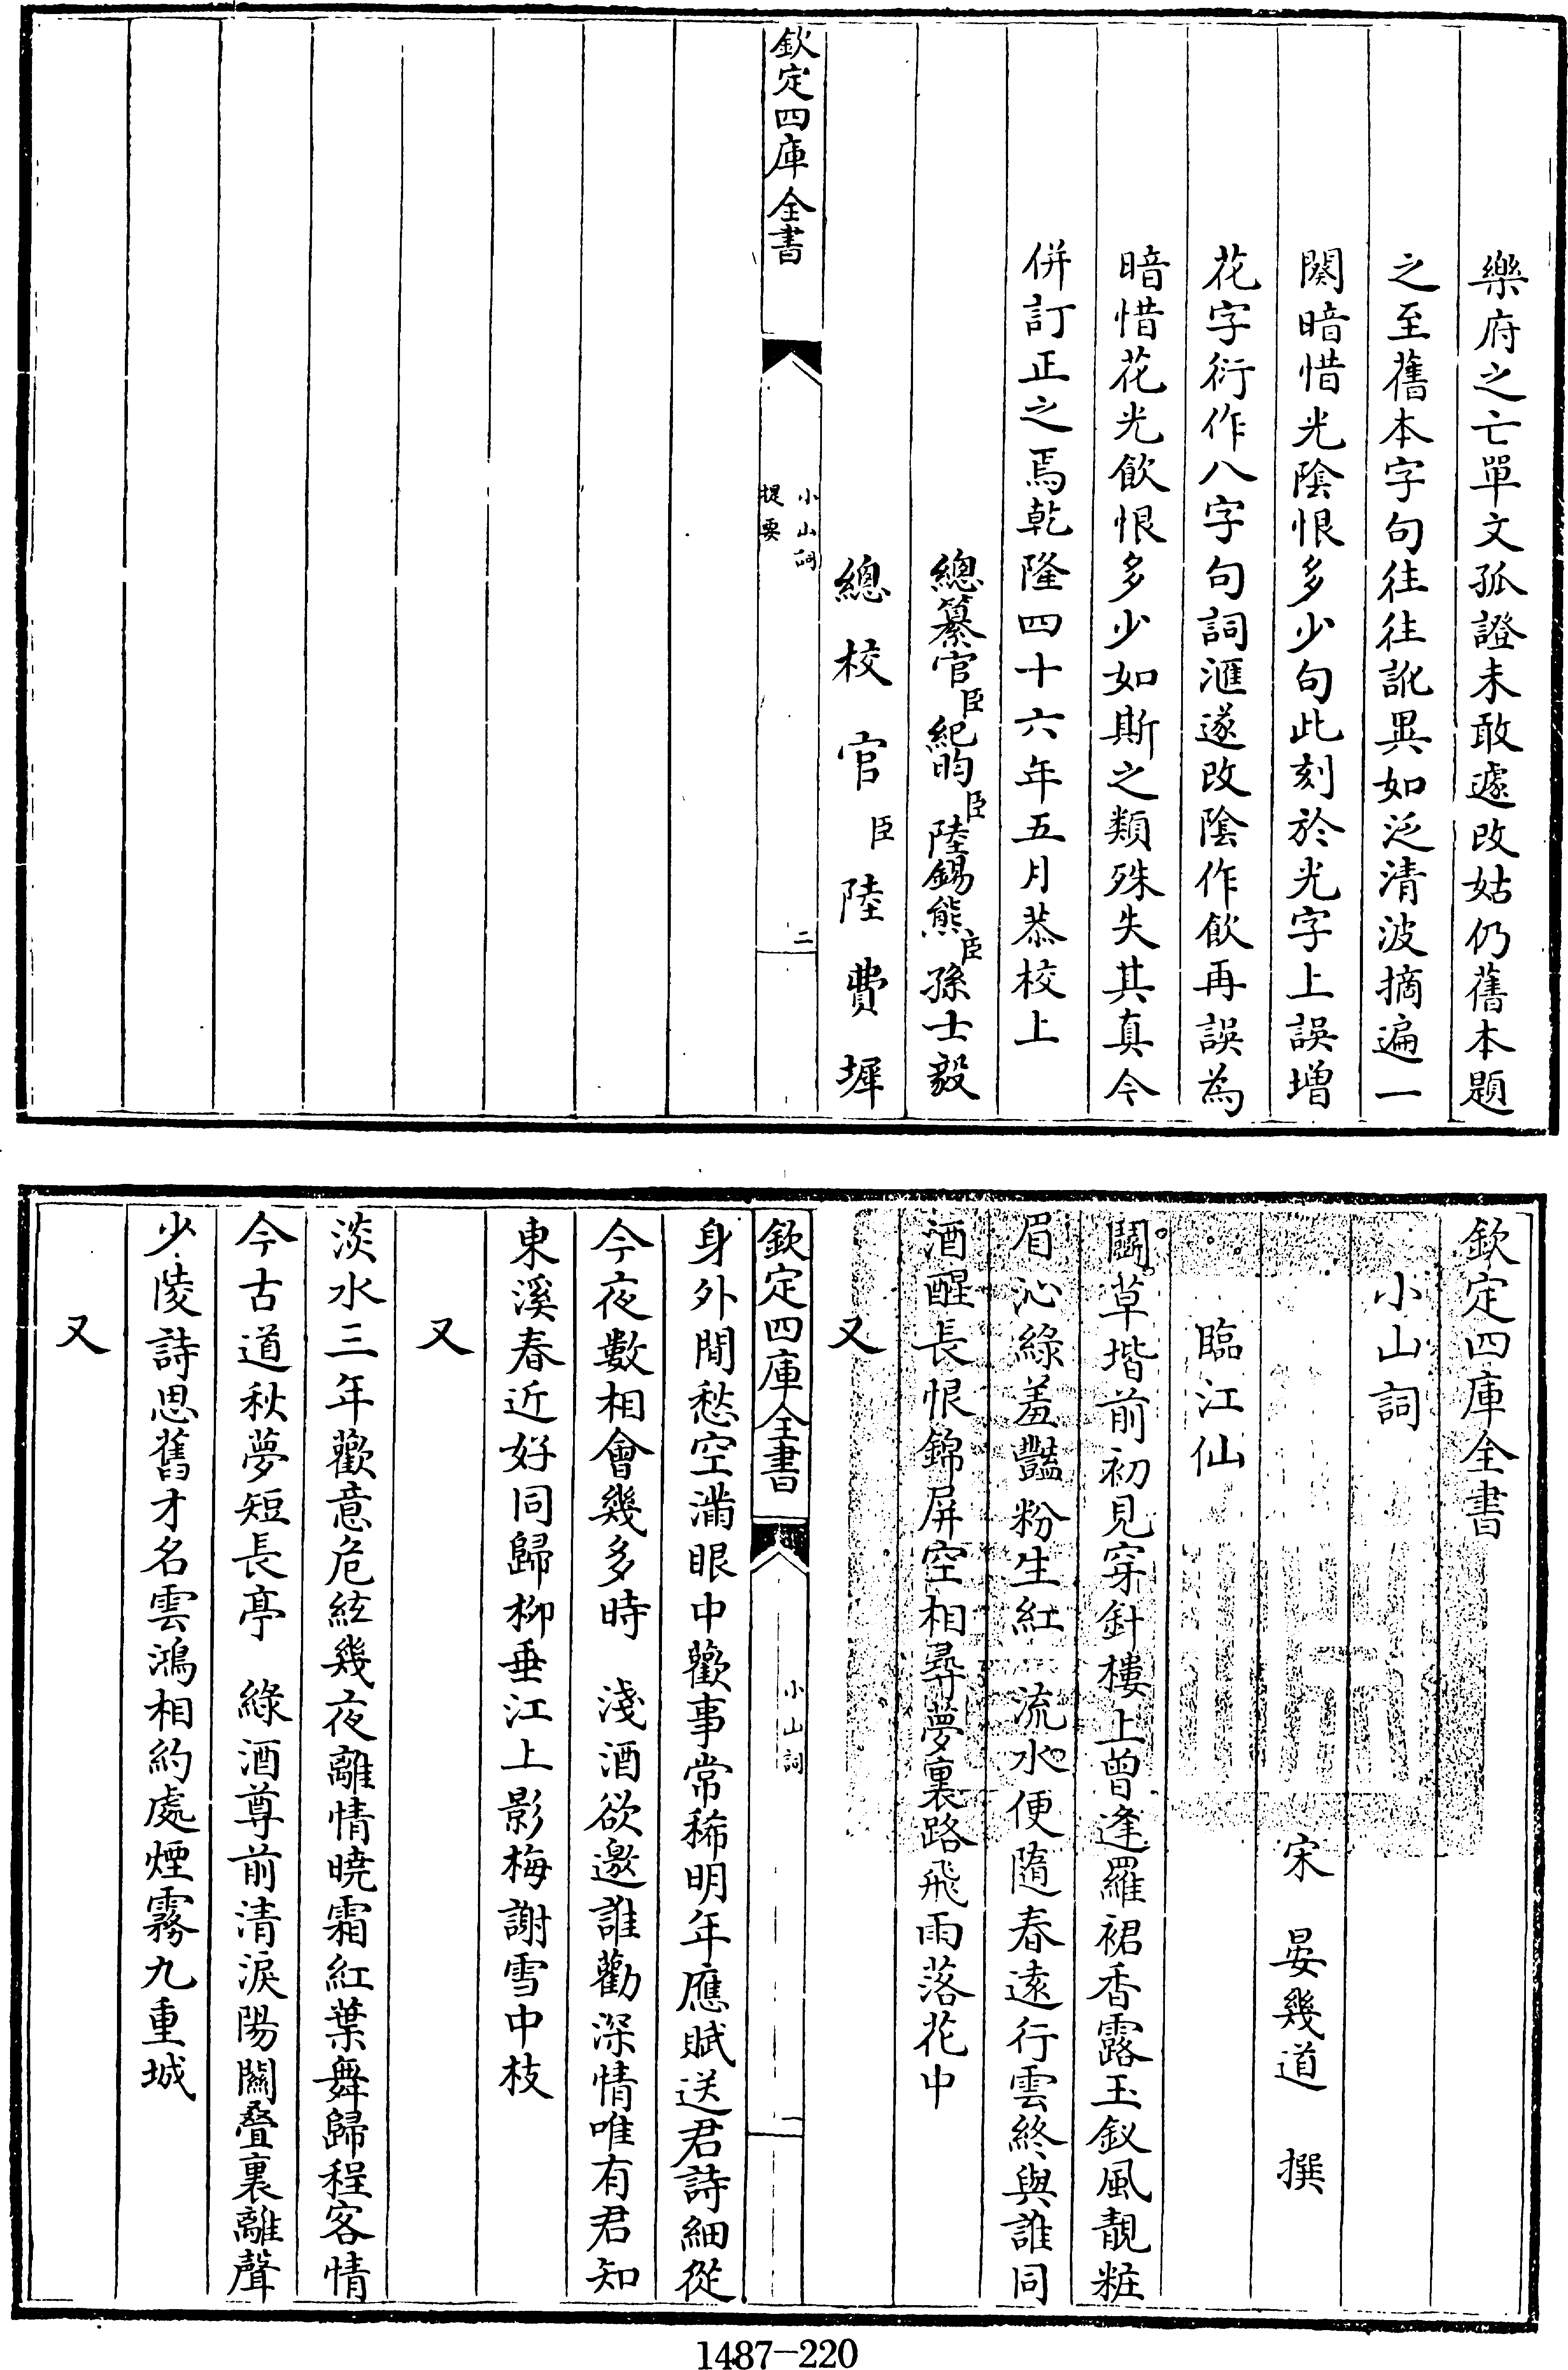 樂府之亡單文孤證未敢遽改姑仍舊本題
之至舊本字句往往訛異如泛清波摘遍一
闋暗惜光陰恨多少句此刻於光字上誤增
花字衍作八字句詞滙遂改陰作飲再誤為
暗惜花光飲恨多少如斯之類殊失其真今
併訂正之焉乾隆四十六年五月恭校上
總纂官臣紀昀臣陸錫熊臣孫士毅
總校官臣陸費墀
欽定四庫全書
小山詞
提要
二
欽定四庫全書
小山詞
宋 晏幾道 撰
臨江仙
鬭草堦前初見穿針樓上曾逢羅裙香露玉釵風靚粧
眉沁綠羞豔粉生紅 流水便隨春遠行雲終與誰同
酒醒長恨錦屏空相尋夢裏路飛雨落花中
又
欽定四庫全書
小山詞
一
身外閒愁空滿眼中歡事常稀明年應賦送君詩細從
今夜數相會幾多時 淺酒欲邀誰勸深情唯有君知
東溪春近好同歸柳垂江上影梅謝雪中枝
又
淡水三年歡意危絃幾夜離情曉霜紅葉舞歸程客情
今古道秋夢短長亭 綠酒尊前清淚陽關疊裏離聲
少陵詩思舊才名雲鴻相約處煙霧九重城
又
1487-220